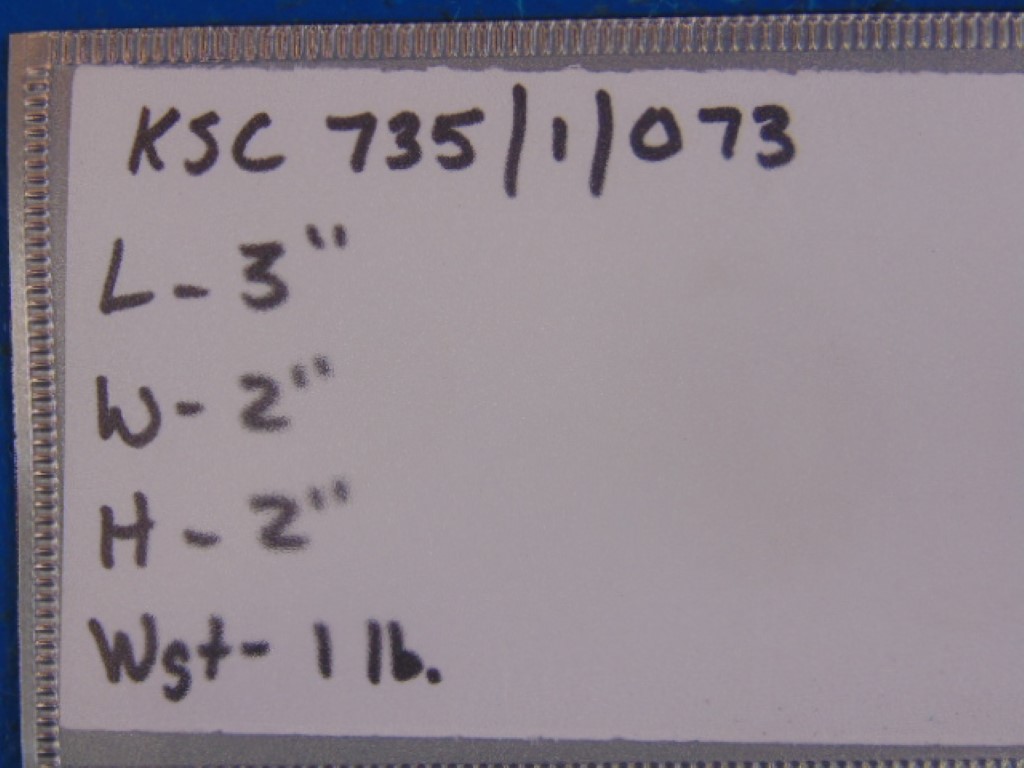 KSC 735/1/073
L-3"
W-2"
H-2"
Wgt-1 lb.